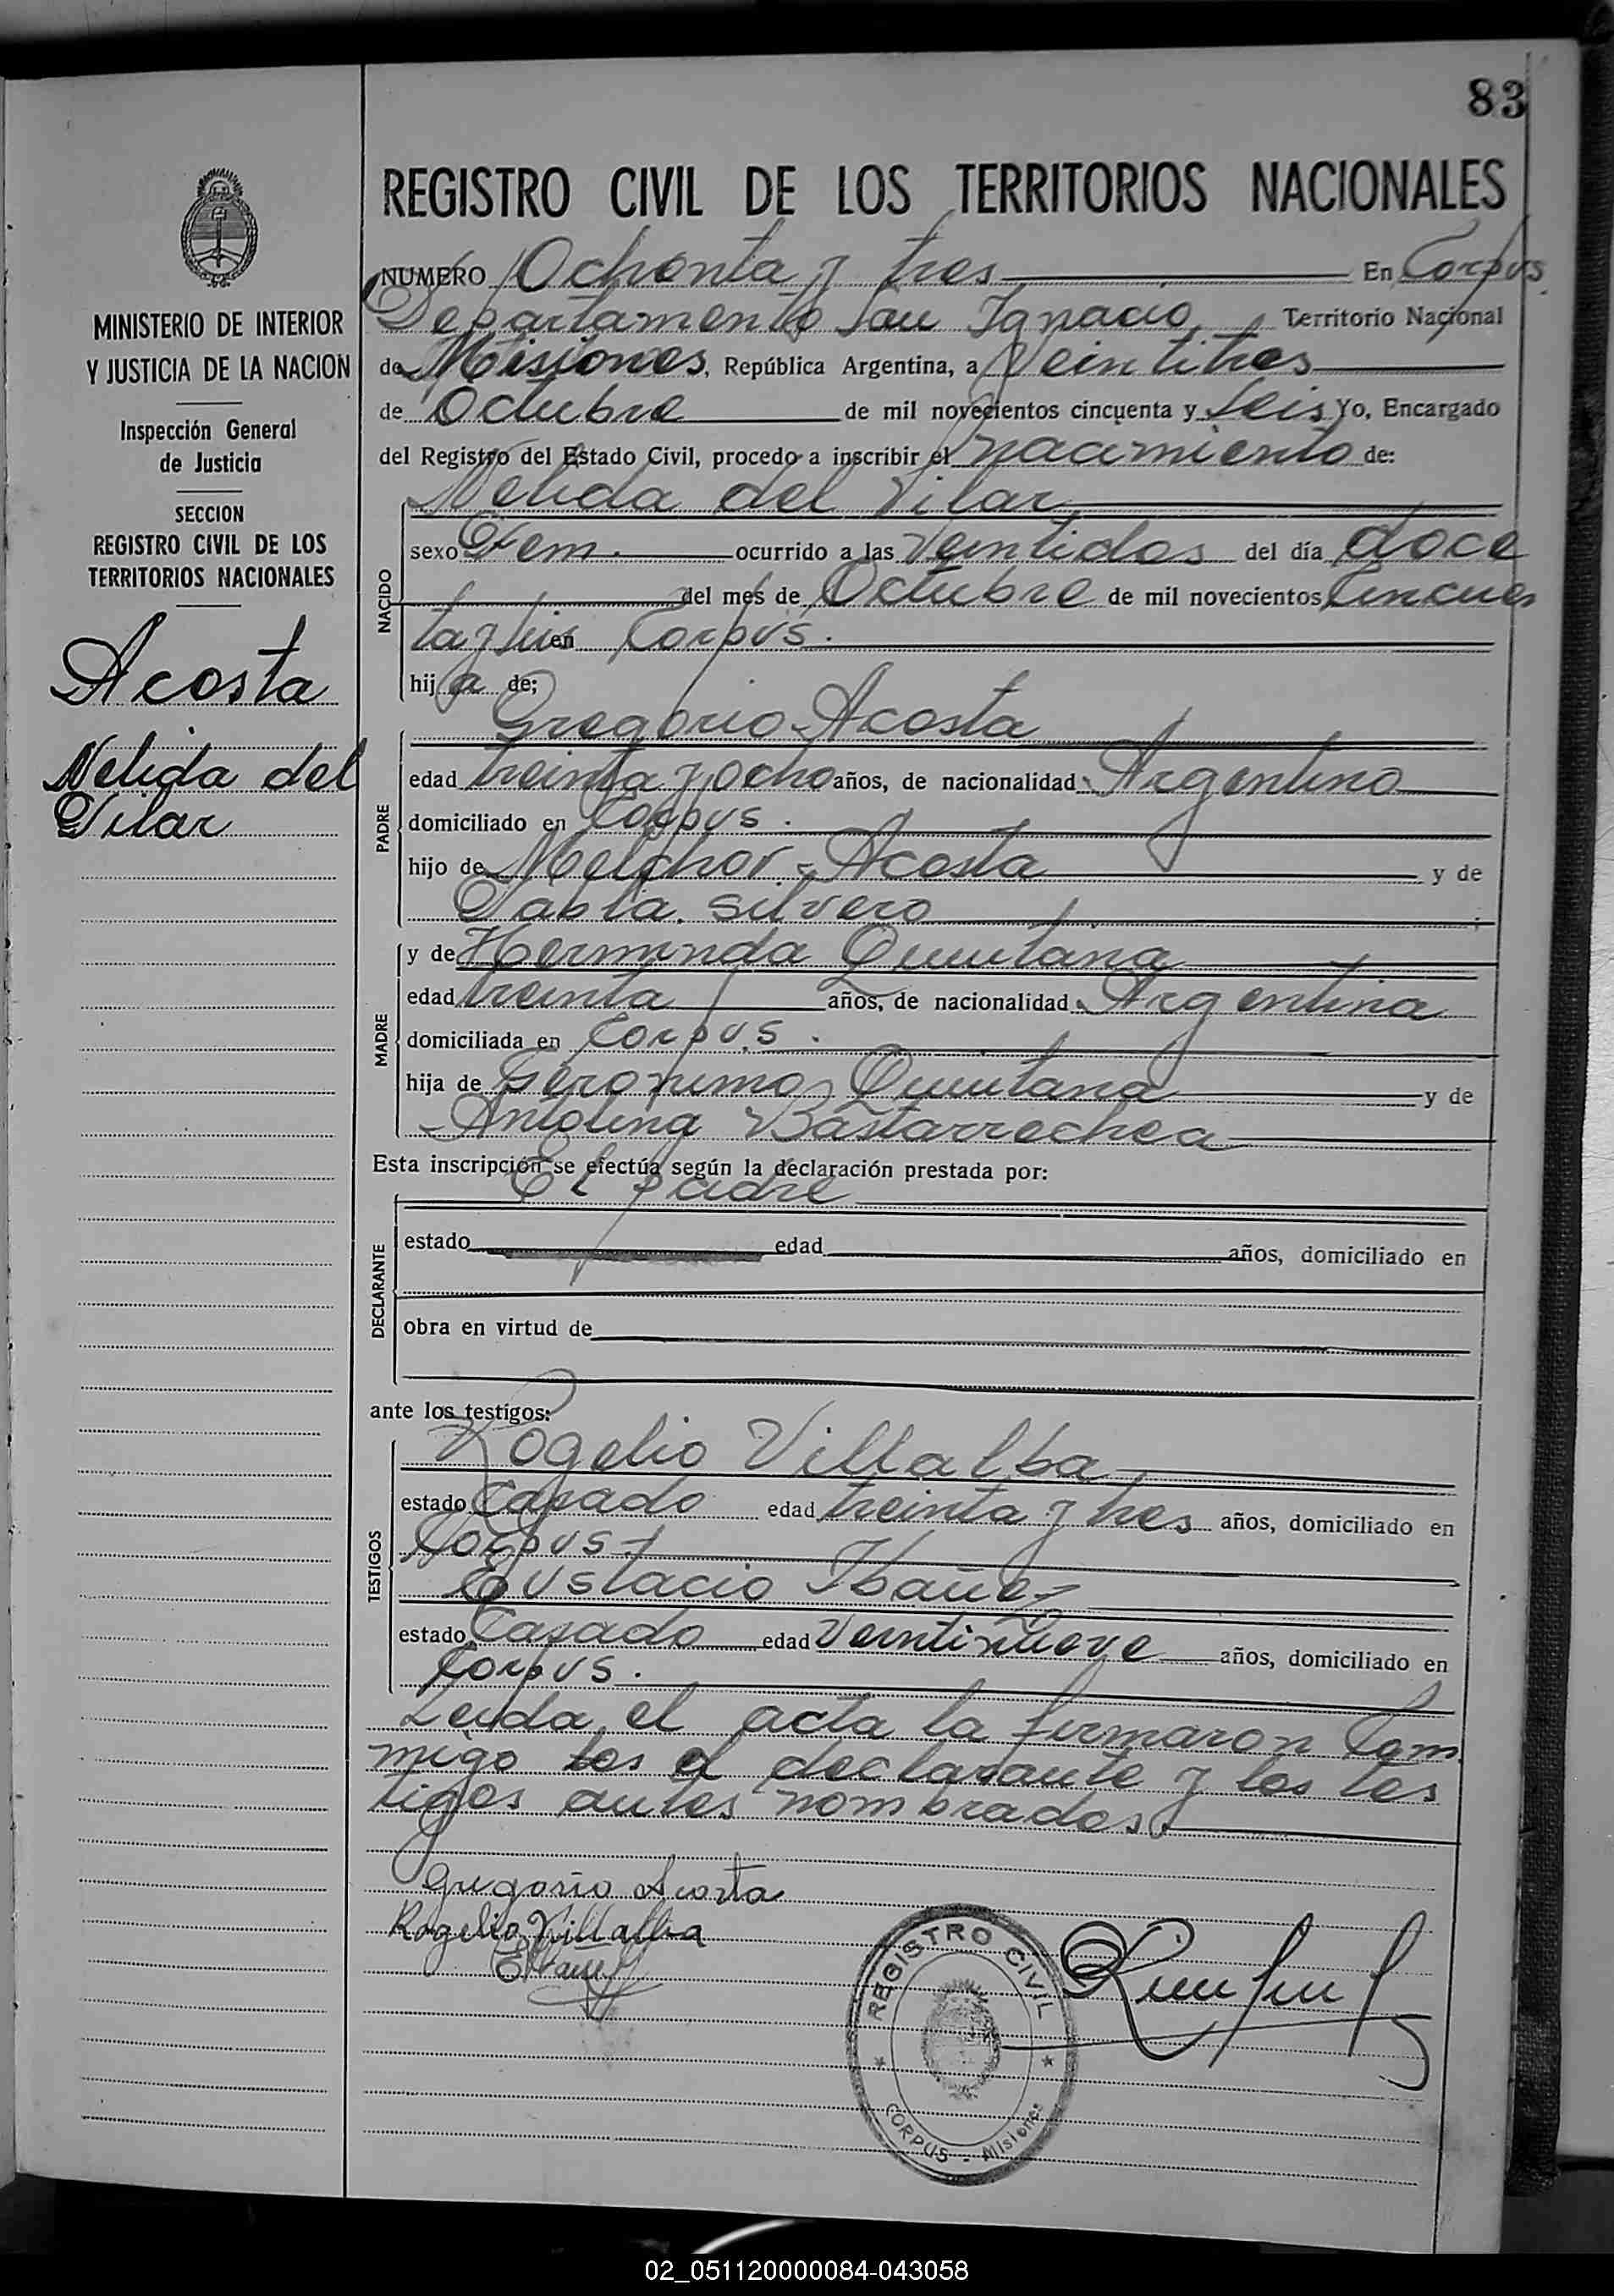 83
REGISTRO CIVIL DE LOS TERRITORIOS NACIONALES
MINISTERIO DE INTERIOR
Y JUSTICIA DE LA NACION
Inspección General
de Justicia
SECCION
REGISTRO CIVIL DE LOS
TERRITORIOS NACIONALES
Acosta
Nelida del
Pilar
NUMERO Ochenta y tres En Corpus
Departamento San Ignacio Territorio Nacional
de Misiones, República Argentina, a Veintitres
de Octubre de mil novecientos cincuenta y seis Yo, Encargado
del Registro del Estado Civil, procedo a inscribir el nacimiento de:
Nelida del Pilar
NACIDO
sexo Fem. ocurrido a las Veintidos del día doce
del mes de Octubre de mil novecientos Cincuen
ta y seis en Corpus.
hija de:
Gregorio Acosta
PADRE
edad treinta y ocho años, de nacionalidad Argentino
domiciliado en Corpus.
hijo de Melchor Acosta y de
Pabla Silvero
MADRE
y de Herminda Quintana
edad treinta años, de nacionalidad Argentina
domiciliada en Corpus.
hija de Geronimo Quintana y de
Antolina Bastarrechea
Esta inscripción se efectúa según la declaración prestada por:
El padre
DECLARANTE
estado edad años, domiciliado en
obra en virtud de
ante los testigos:
Rogelio Villalba
TESTIGOS
estado Casado edad treinta y tres años, domiciliado en
Corpus
Eustacio Ibañez
estado Casado edad Veintinueve años, domiciliado en
Corpus.
Leida el acta la firmaron Con
migo los el declarante y los tes
tigos antes nombrados
Gregorio Acosta
Rogelio Villalba
REGISTRO CIVIL
CORPUS - Misiones
02_051120000084-043058